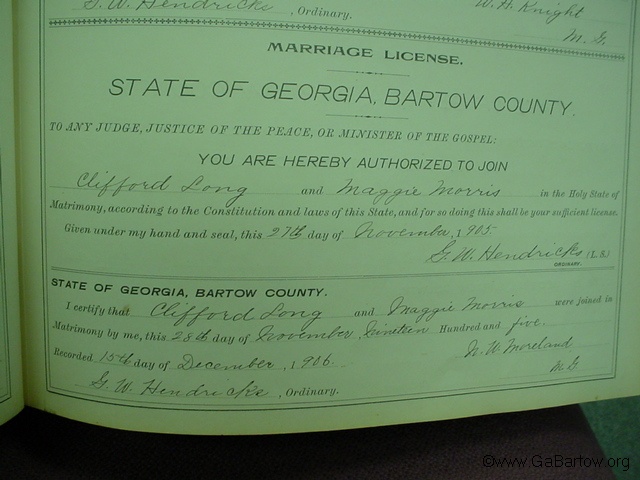 G. W. Hendricks, Ordinary. W. H. Knight
M. G.
MARRIAGE LICENSE.
STATE OF GEORGIA, BARTOW COUNTY.
TO ANY JUDGE, JUSTICE OF THE PEACE, OR MINISTER OF THE GOSPEL:
YOU ARE HEREBY AUTHORIZED TO JOIN
Clifford Long and Maggie Morris in the Holy State of
Matrimony, according to the Constitution and laws of this State, and for so doing this shall be your sufficient license.
Given under my hand and seal, this 27th day of November, 1905
G. W. Hendricks (L. S.)
ORDINARY.
STATE OF GEORGIA, BARTOW COUNTY.
I certify that Clifford Long and Maggie Morris were joined in
Matrimony by me, this 28th day of November, Nineteen Hundred and five.
Recorded 15th day of December, 1906. N. W. Moreland
M. G.
G. W. Hendricks, Ordinary.
©www.GaBartow.org